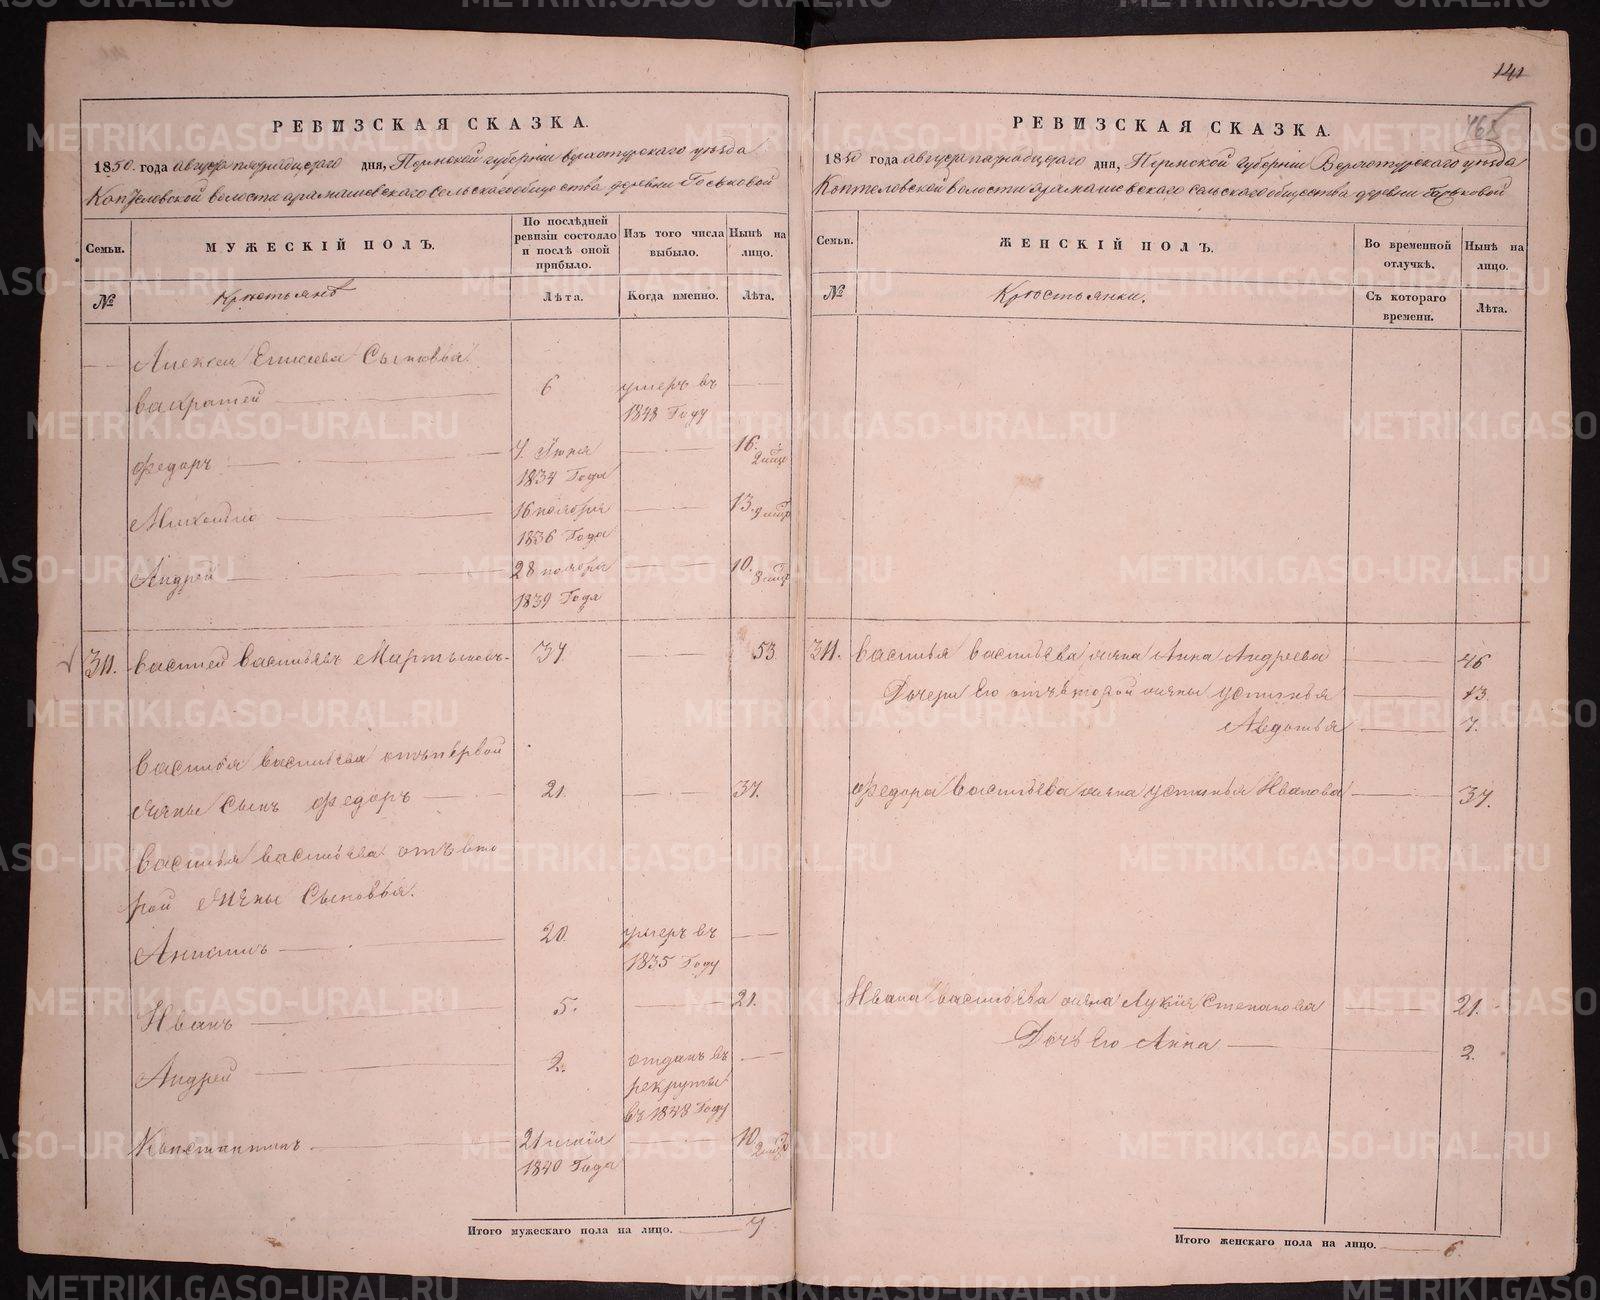 141
465
РЕВИЗСКАЯ СКАЗКА.
1850. года августа пятнадцатаго дня, Пермской губерніи верхотурскаго уѣзда
Коптеловской волости арамашевскаго сельскаго общества деревни Госьковой
Семьи. МУЖЕСКІЙ ПОЛЪ. По послѣдней ревизіи состояло и послѣ оной прибыло. Изъ того числа выбыло. Нынѣ на лицо.
№ Крестьянъ Лѣта. Когда именно. Лѣта.
Алексея Елисеева Сыновья
6 умеръ въ
1848 Году
федоръ 7. Июня 16. 2 мѣс
1834 Года
Михайло 16 ноября 13. 9 мѣс
1836 Года
Андрей 28 ноября 10. 8 мѣс
1839 Года
василей васильевъ Мартыновъ 37. 53.
Василья васильева отъ первой
жены Сынъ федоръ 21. 37.
Василья васильева отъ вто
рой жены Сыновья.
20. умеръ въ
1835 Году
Иванъ 5. 21.
Андрей 2. отданъ въ
рекруты
въ 1848 Году
Константинъ 21 маія 10. 2 мѣс
1840 Года
Итого мужескаго пола на лицо. 7
РЕВИЗСКАЯ СКАЗКА.
1850 года августа пятнадцатаго дня, Пермской Губерніи Верхотурскаго уѣзда
Коптеловской волости арамашевскаго сельскаго общества деревни Госьковой
Семьи. ЖЕНСКІЙ ПОЛЪ. Во временной отлучкѣ. Нынѣ на лицо.
№ Крестьянки. Съ котораго времени. Лѣта.
василья васильева жена Анна Андреева 46
Дочери Его отъ второй жены устинья 13.
Авдотья 7.
федора васильева жена устинья Иванова 37.
Ивана васильева жена Лукия степанова 21.
Дочь Его Анна 2.
Итого женскаго пола на лицо. 6.
METRIKI.GASO-URAL.RU